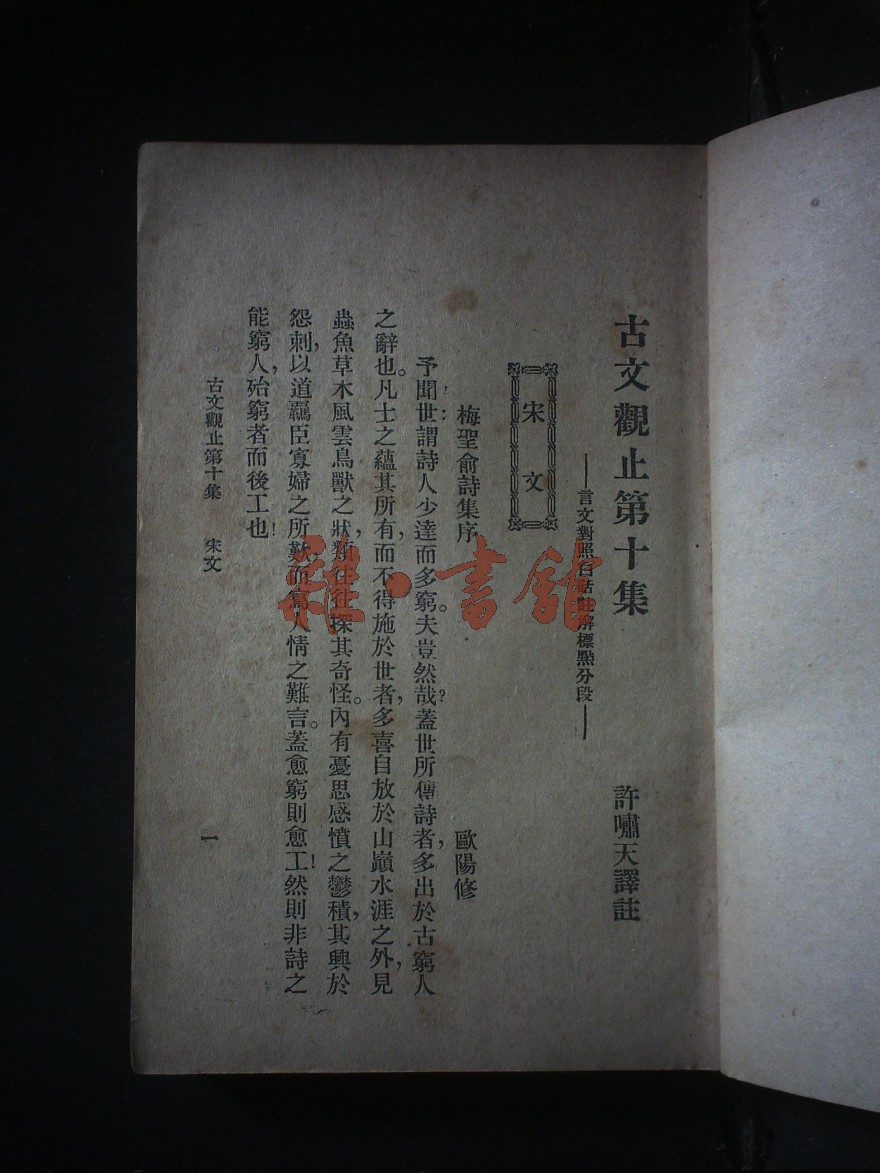 古文觀止第十集
許嘯天譯註
——言文對照白話註解標點分段——
宋文
梅聖俞詩集序
歐陽修
予聞世謂：詩人少達而多窮。夫豈然哉？蓋世所傳詩者，多出於古窮人
之辭也。凡士之蘊其所有，而不得施於世者，多喜自放於山巔水涯之外，見
蟲魚草木風雲鳥獸之狀類，往往探其奇怪。內有憂思感憤之鬱積，其興於
怨刺，以道羈臣寡婦之所歎，而寫人情之難言。蓋愈窮則愈工！然則非詩之
能窮人，殆窮者而後工也！
古文觀止第十集　宋文
一
雜·書館